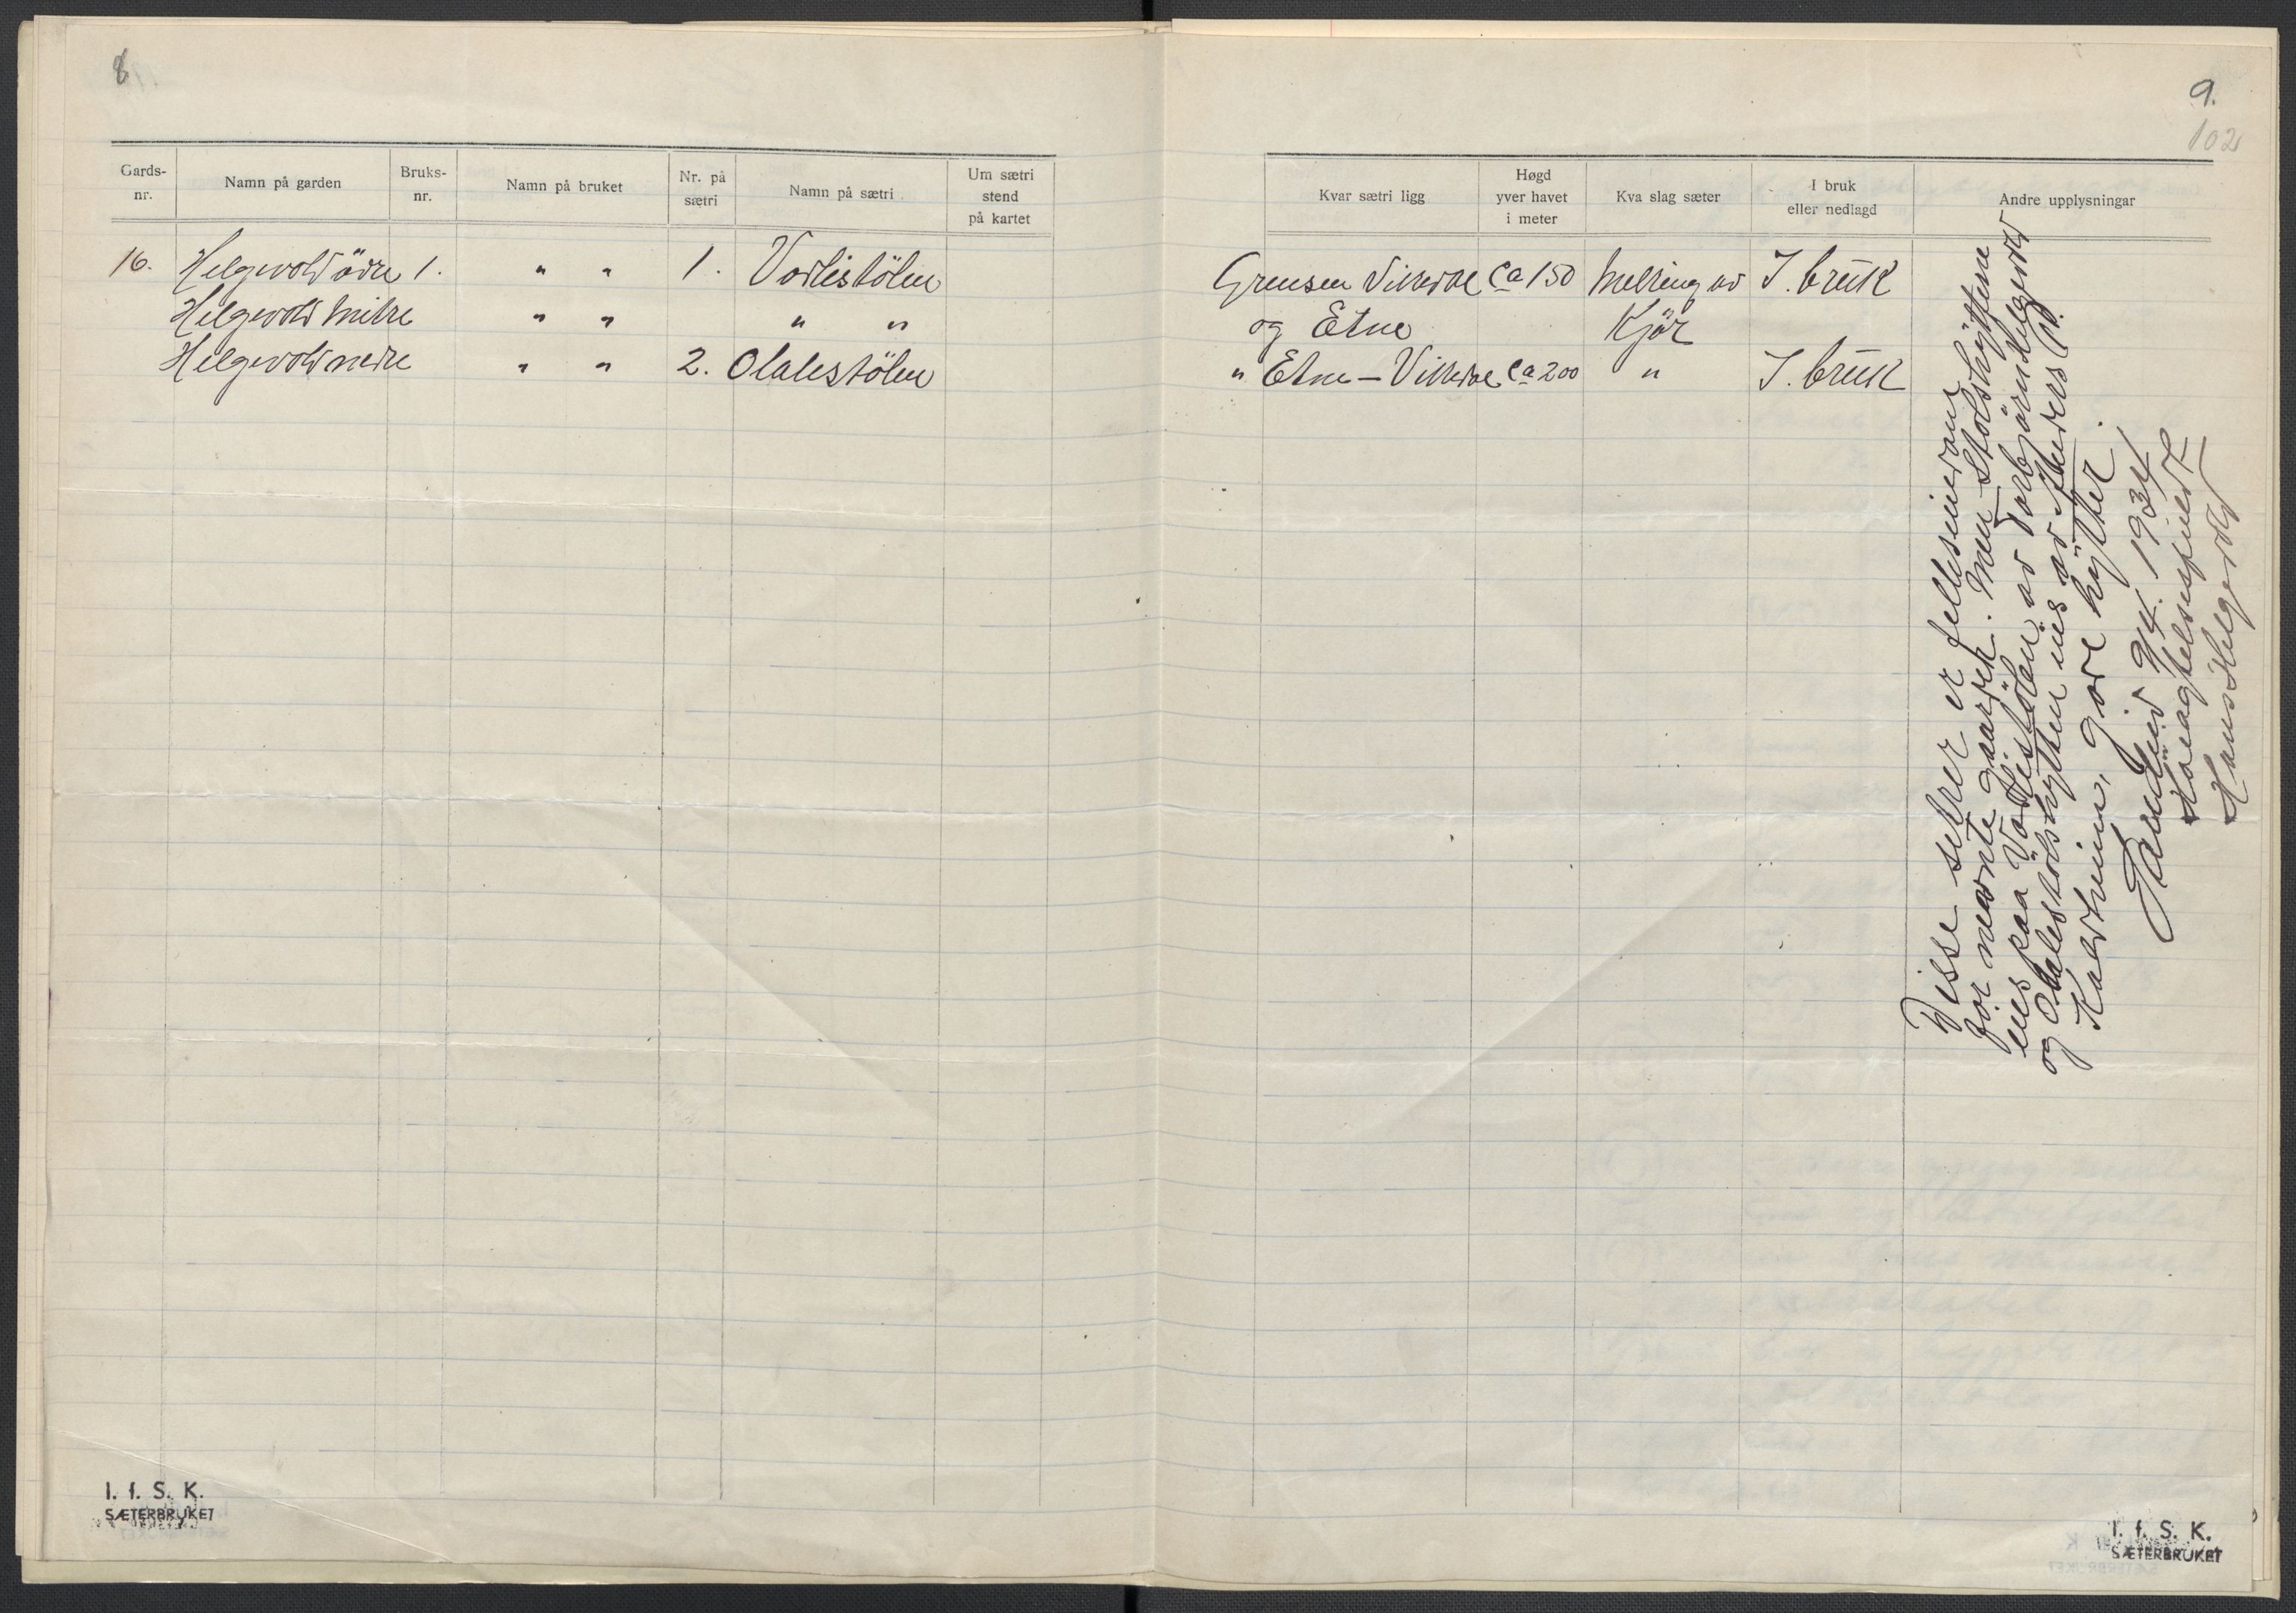 8
Gards-nr. Namn på garden Bruks-nr. Namn på bruket Nr. på sætri Namn på sætri Um sætri stend på kartet
16. Helgevold övre 1. " " 1. Vorlistölen
Helgevold mitre " " " "
Helgevold nedre " " 2. Olalestölen
I. f. S. K.
SÆTERBRUKET
9.
102
Kvar sætri ligg Høgd yver havet i meter Kva slag sæter I bruk eller nedlagd Andre upplysningar
Grensen Vikedal ca 150 Melking av I. bruk
og Etne Kjör
" Etne - Vikedal ca 200 " I. bruk
Disse setrer er felles
for nevnte gaarder. Men Stölshyttene
eies paa Vorlistölen av Torbjörn Helgevold
og Olalestölshytten eies av
gode hytter.
9/4. 1934
Hans Helgevold
I. f. S. K.
SÆTERBRUKET